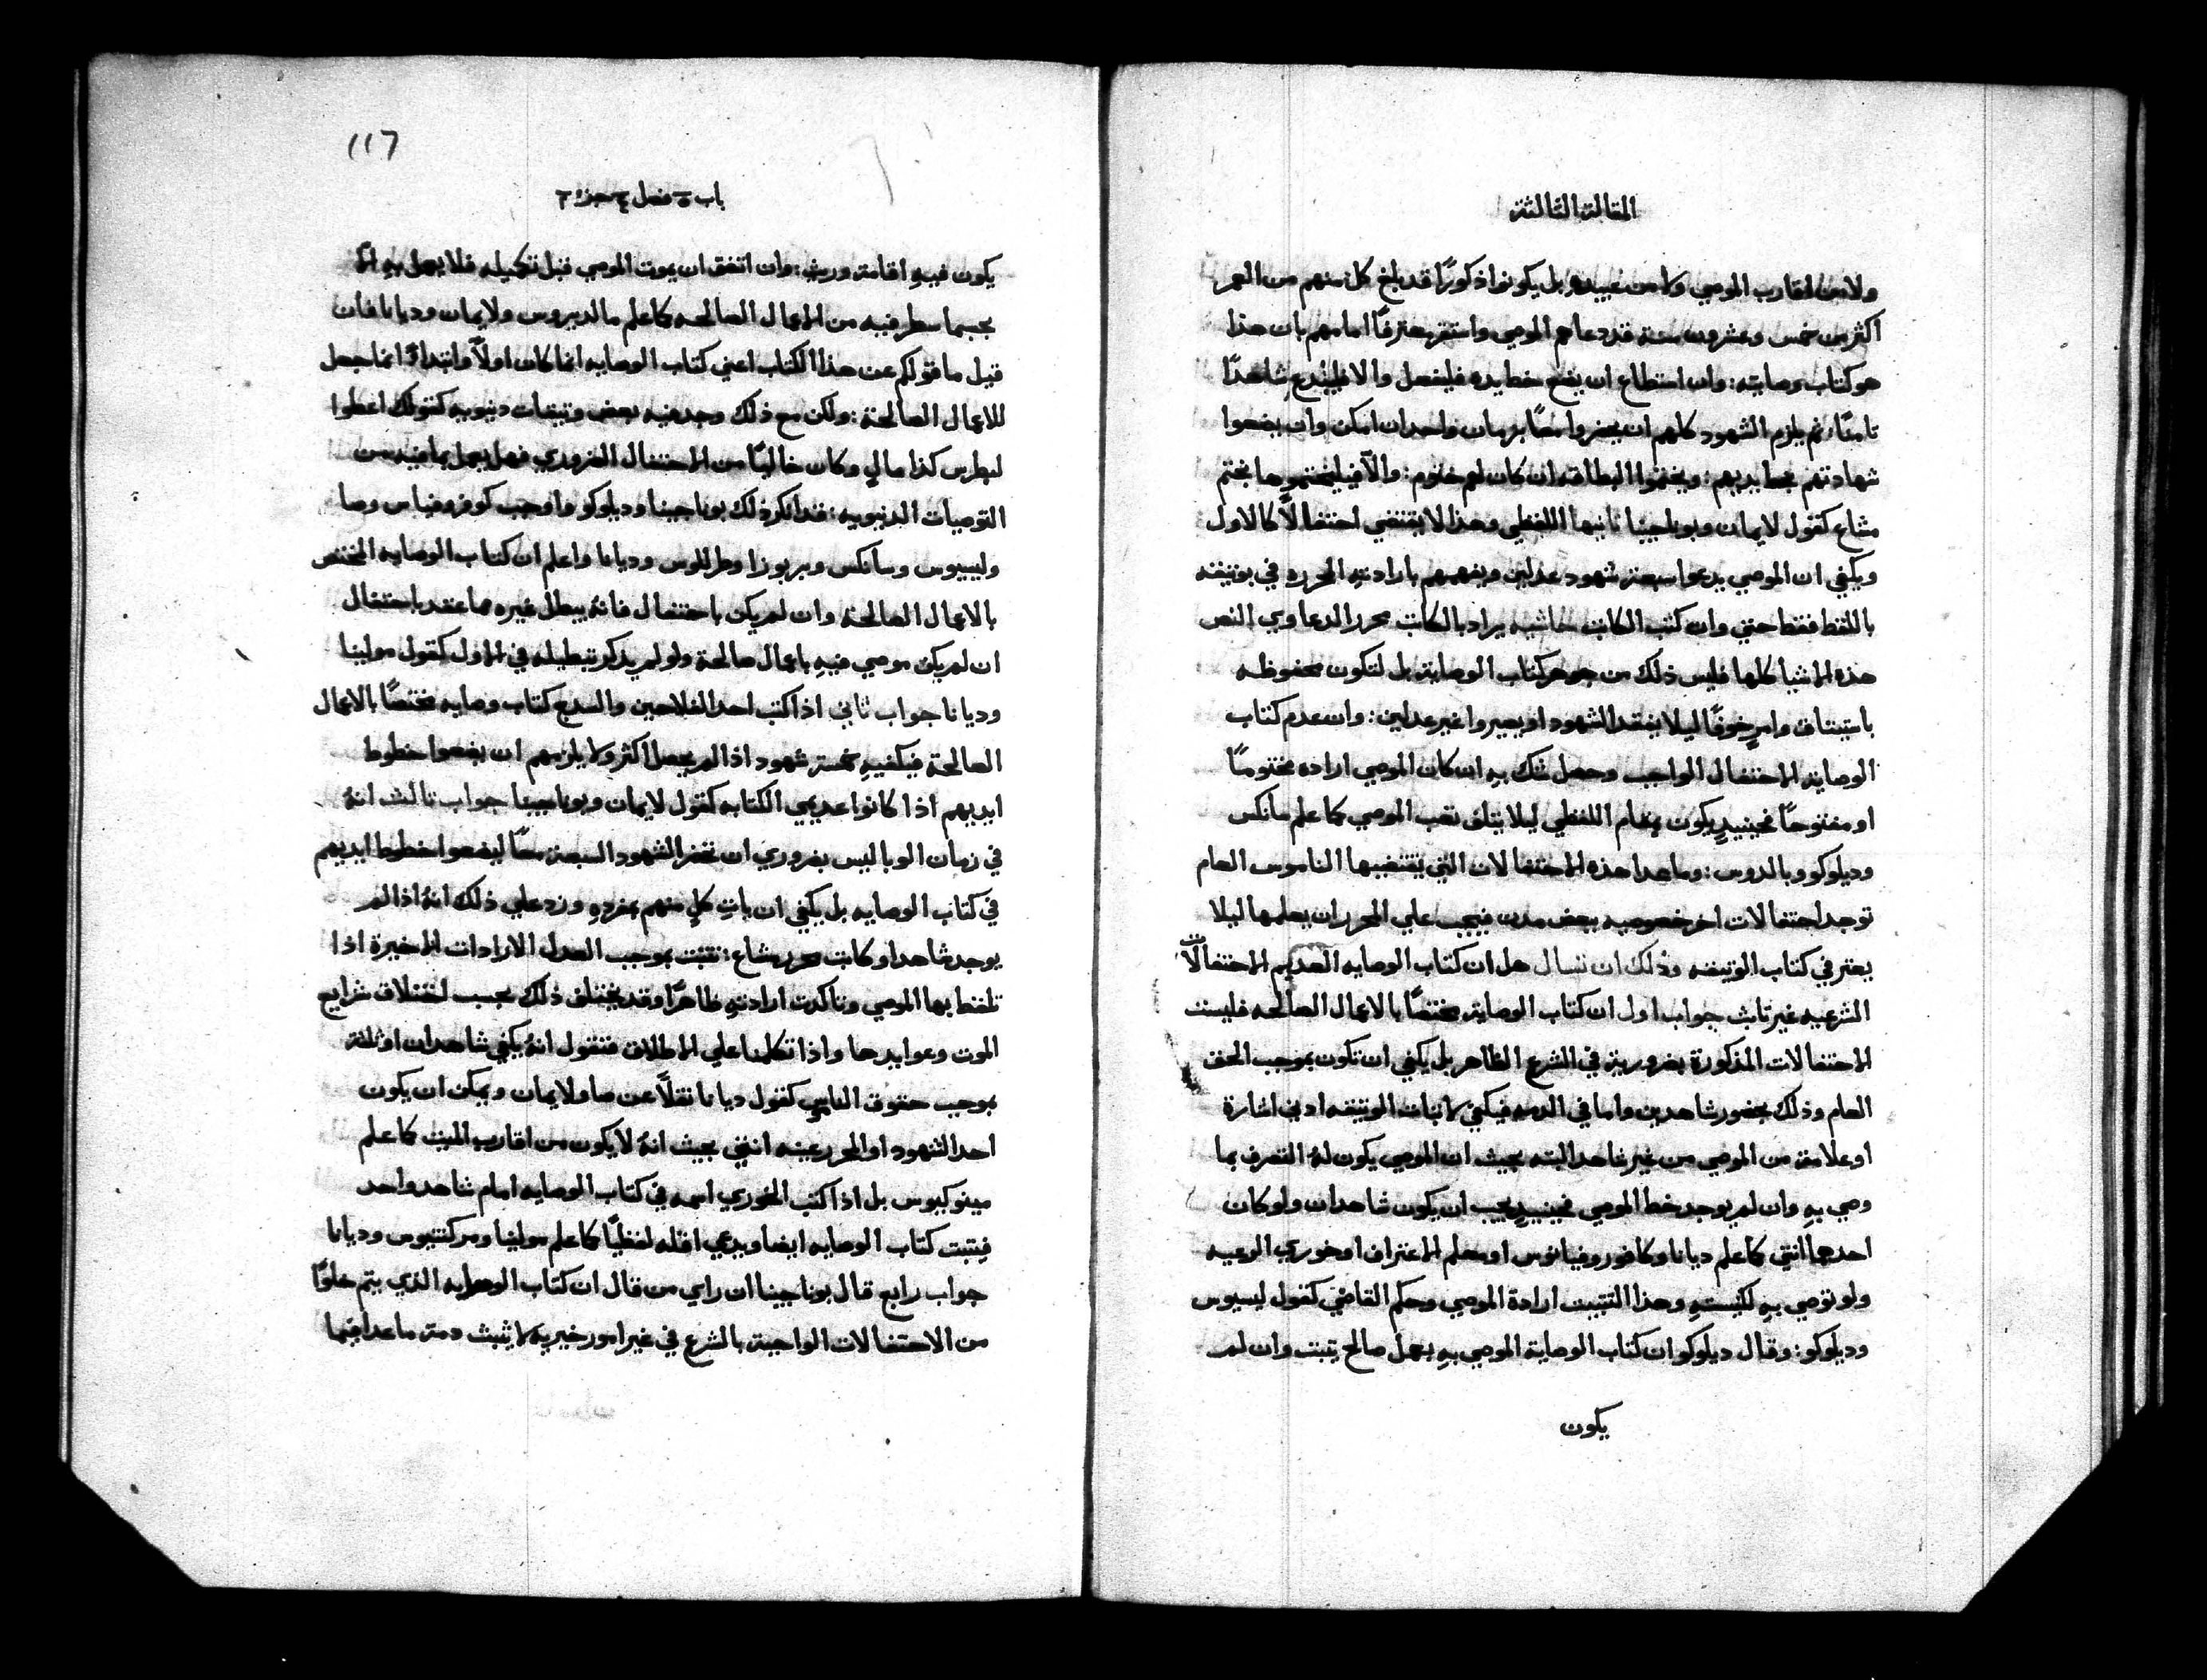 المقالة الثالثة
ولا من اقارب الموصي ولا من عبيده بل يكونوا ذكورًا قد بلغ كل منهم من العمر
اكثر من خمس وعشرون سنة قد دعاهم الموصي واستقر معترفًا امامهم بان هذا
هو كتاب وصايته: وان استطاع ان يضع خط يده فليفعل والا فليدع شاهدًا
ثامنًا: ثم يلزم الشهود كلهم ان يحضروا معًا بزمان واحد ان امكن وان يضعوا
شهادتهم بخط يديهم: ويختموا البطاقه ان كان لهم ختوم: والّا فيليختموها بختم
مشاع كقول لايمان وبوناجينا ثانيها اللفظي وهذا لا يقتضي احتفالًا كالاول
ويكفي ان الموصي يدعوا سبعة شهود عدلين ويفهمهم بارادته المحرره في بوتيقته
باللفظ فقط حتي وان كتب الكاتب حاشيه يراد بالكاتب محرر الدعاوي النص
هذه الاشيا كلها فليس ذلك من جوهر كتاب الوصاية بل لتكون محفوظه
باستيثاق وامرٍ خوفًا ليلا يفتقد الشهود او يصيروا غير عدلين: وان عدم كتاب
الوصاية الاحتفال الواجب وحصل شك به ان كان الموصي اراده مختومًا
او مفتوحًا فحينيدٍ يكون بمقام اللفظي ليلا يتلف تعب الموصي كما علم مانكس
وديلوكو وبالدوس: وما عدا هذه الاحتفالات التي يقتضيها الناموس العام
توجد احتفالات اخر خصوصيه ببعض مدن فيجب علي المحرر ان يعلمها ليلا
يعتر في كتاب الوتيقه وذلك ان نسال هل ان كتاب الوصايه العديم الاحتفالات
الشرعيه غير تابث جواب اول ان كتاب الوصاية مختصًا بالاعمال الصالحه فليست
الاحتفالات المذكورة بضرورية في الشرع الظاهر بل يكفي ان تكون بموجب الحق
العام وذلك بحضور شاهدين واما في الدمه فيكفي لاتبات الوتيقه ادني اشارة
او علامة من الموصي من غير شاهد البته بحيث ان الموصي يكون لهُ التصرف بما
وصي به وان لم يوجد خط الموصي فحينيدٍ يجب ان يكون شاهدان ولو كان
احدهما انتي كما علم ديانا وكافوروفيانوس او معلم الاعتراف او خوري الرعيه
ولو توصي به لكنيسته وهذا التتبيت ارادة الموصي وحكم القاضي كقول ليسيوس
وديلوكو: وقال ديلوكو ان كتاب الوصاية الموصي به بعمل صالح يتبت وان لم
يكون
١١٦
باب ٥ فصل ٤ جزؤ ٢
يكون فيه اقامة وريث: وان اتفق ان يموت الموصي قبل تكميله فلا يعمل به الّا
بحسبما سطر فيه من الاعمال الصالحه كما علم مالديروس ولايمان وديانا فان
قيل ما قولكم عن هذا الكتاب اعني كتاب الوصايه انما كان اولًا وابتداءً انما جعل
للاعمال الصالحة: ولكن مع ذلك وجد فيه بعض وتيقات دنيويه كقولك اعطوا
لبطرس كذا مالٍ وكان خاليًا من الاحتفال الضروري فهل يعمل بما فيه من
التوصيات الدنيويه: قد انكر ذلك بوناجينا وديلوكو واوجب كوفروفياس وصا
وليسيوس وسانكس وبربوزا وطرللوس وديانا واعلم ان كتاب الوصايه المختص
بالاعمال الصالحة وان لم يكن باحتفال فانهُ يبطل غيره مما عقد باحتفال
ان لم يكن موصي فيه باعمال صالحة ولو لم يذكر تبطيله في الاول كقول مولينا
وديانا جواب ثاني اذا كتب احد الفلاحين والسدج كتاب وصايه مختصًا بالاعمال
الصالحة فيكفيهِ خمسة شهود اذا لم يحصل اكثر ولا يلزمهم ان يضعوا خطوط
ايديهم اذا كانوا عديمي الكتابه كقول لايمان وبوناجينا جواب ثالث انهُ
في زمان الوبا ليس بضروري ان تحضر الشهود السبعة معًا ليضعوا خطوط ايديهم
في كتاب الوصايه بل يكفي ان ياتِ كلٍ منهم بمفردهِ وزد علي ذلك انهُ اذا لم
يوجد شاهد او كاتب محرر مشاع: تتبت بموجب العدل الارادات الاخيرة اذا
تلفظ بها الموصي وتاكدت ارادتهِ ظاهرًا وقد يختلف ذلك بحسب اختلاف شرايع
الموت وعوايدها واذا تكلمنا علي الاطلاق فنقول انهُ يكفي شاهدان او ثلثة
بموجب حقوق الناس كقول ديانا نقلًا عن صا ولايمان ويمكن ان يكون
احد الشهود او المحرر عينه انتي بحيث انهُ لا يكون من اقارب الميت كما علم
مينوكيوس بل اذا كتب الخوري اسمه في كتاب الوصايه امام شاهد واحد
فيتبت كتاب الوصايه ايضا ويدعي اقله لفظيًا كما علم مولينا ومركنتيوس وديانا
جواب رابع قال بوناجينا ان راي من قال ان كتاب الوصايه الذي يتم خلوًا
من الاحتفالات الواجبة بالشرع في غير امور خيريه لا يثبث دمة ما عدا فيما